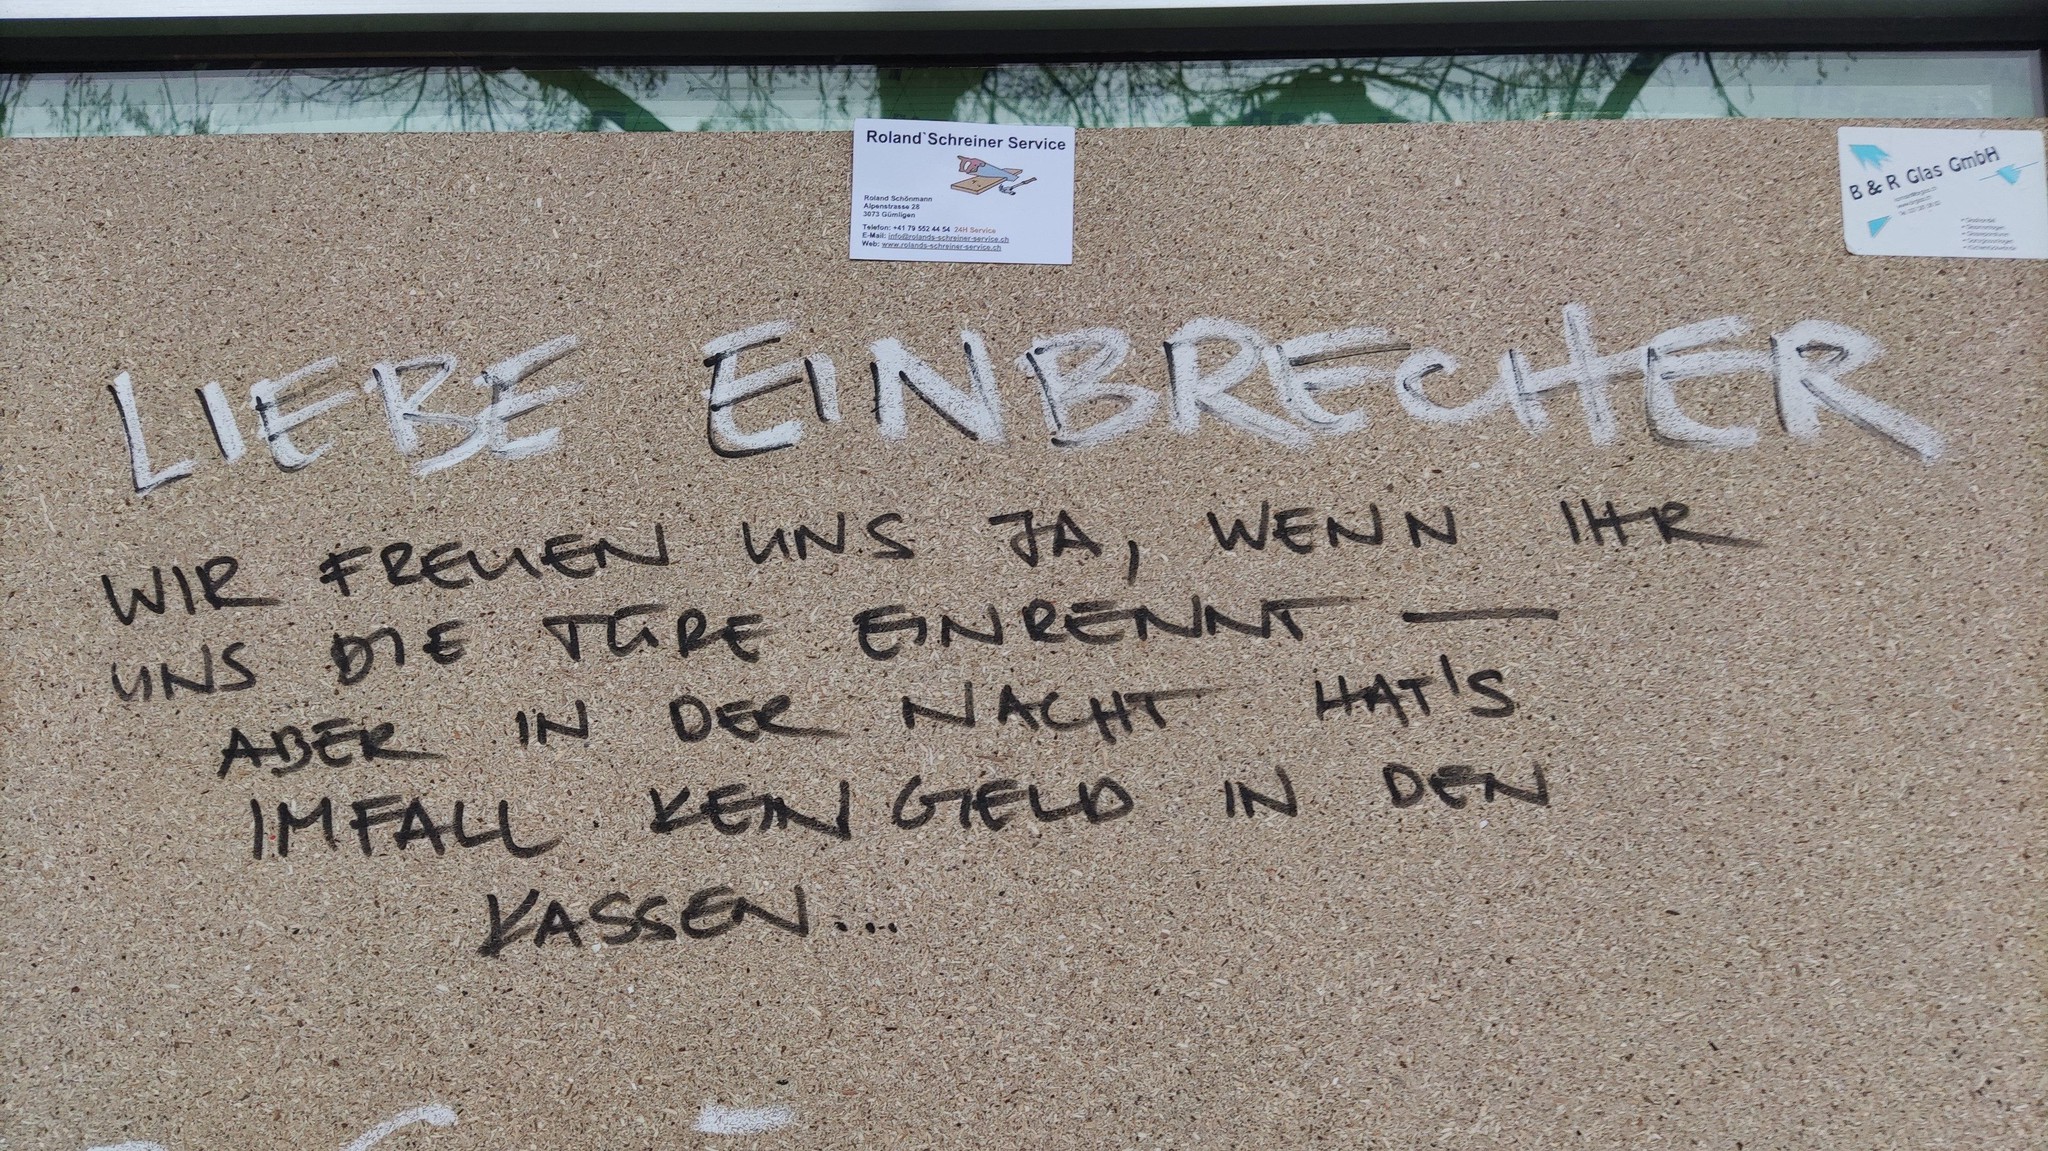 Roland`Schreiner Service
Roland Schönmann
Alpenstrasse 28
3073 Gümligen
Telefon: +41 79 552 44 54 24H Service
E-Mail: info@rolands-schreiner-service.ch
Web: www.rolands-schreiner-service.ch
B & R Glas GmbH
LIEBE EINBRECHER
WIR FREUEN UNS JA, WENN IHR
UNS DIE TÜRE EINRENNT —
ABER IN DER NACHT HAT'S
IMFALL KEIN GELD IN DEN
KASSEN...